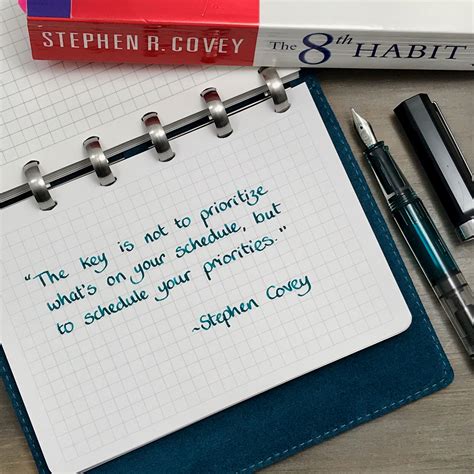 STEPHEN R. COVEY The 8th HABIT
"The key is not to prioritize
what's on your schedule, but
to schedule your priorities."
~Stephen Covey